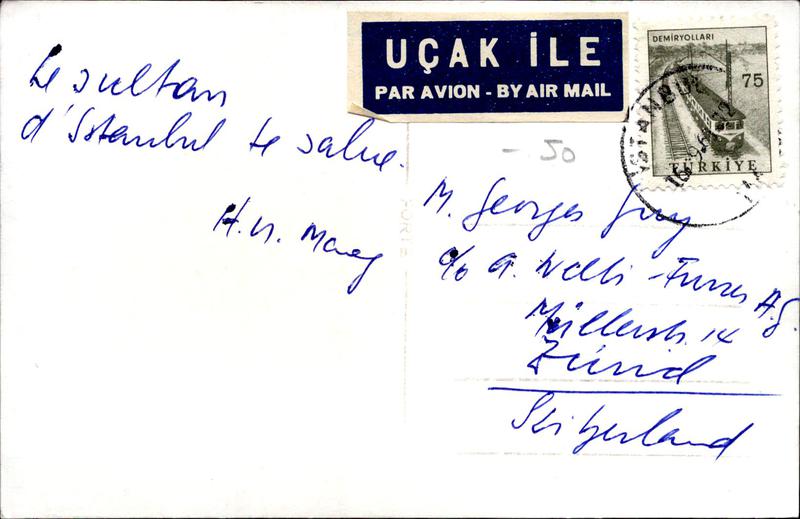 UÇAK İLE
PAR AVION - BY AIR MAIL
DEMİRYOLLARI
75
TÜRKİYE
ISTANBUL
16
Le sultan
d'Istanbul te salue.
- 50
M. Georges
c/o A. Welti-Furrer A.G.
Müllerstr. 14
Zürich
Switzerland